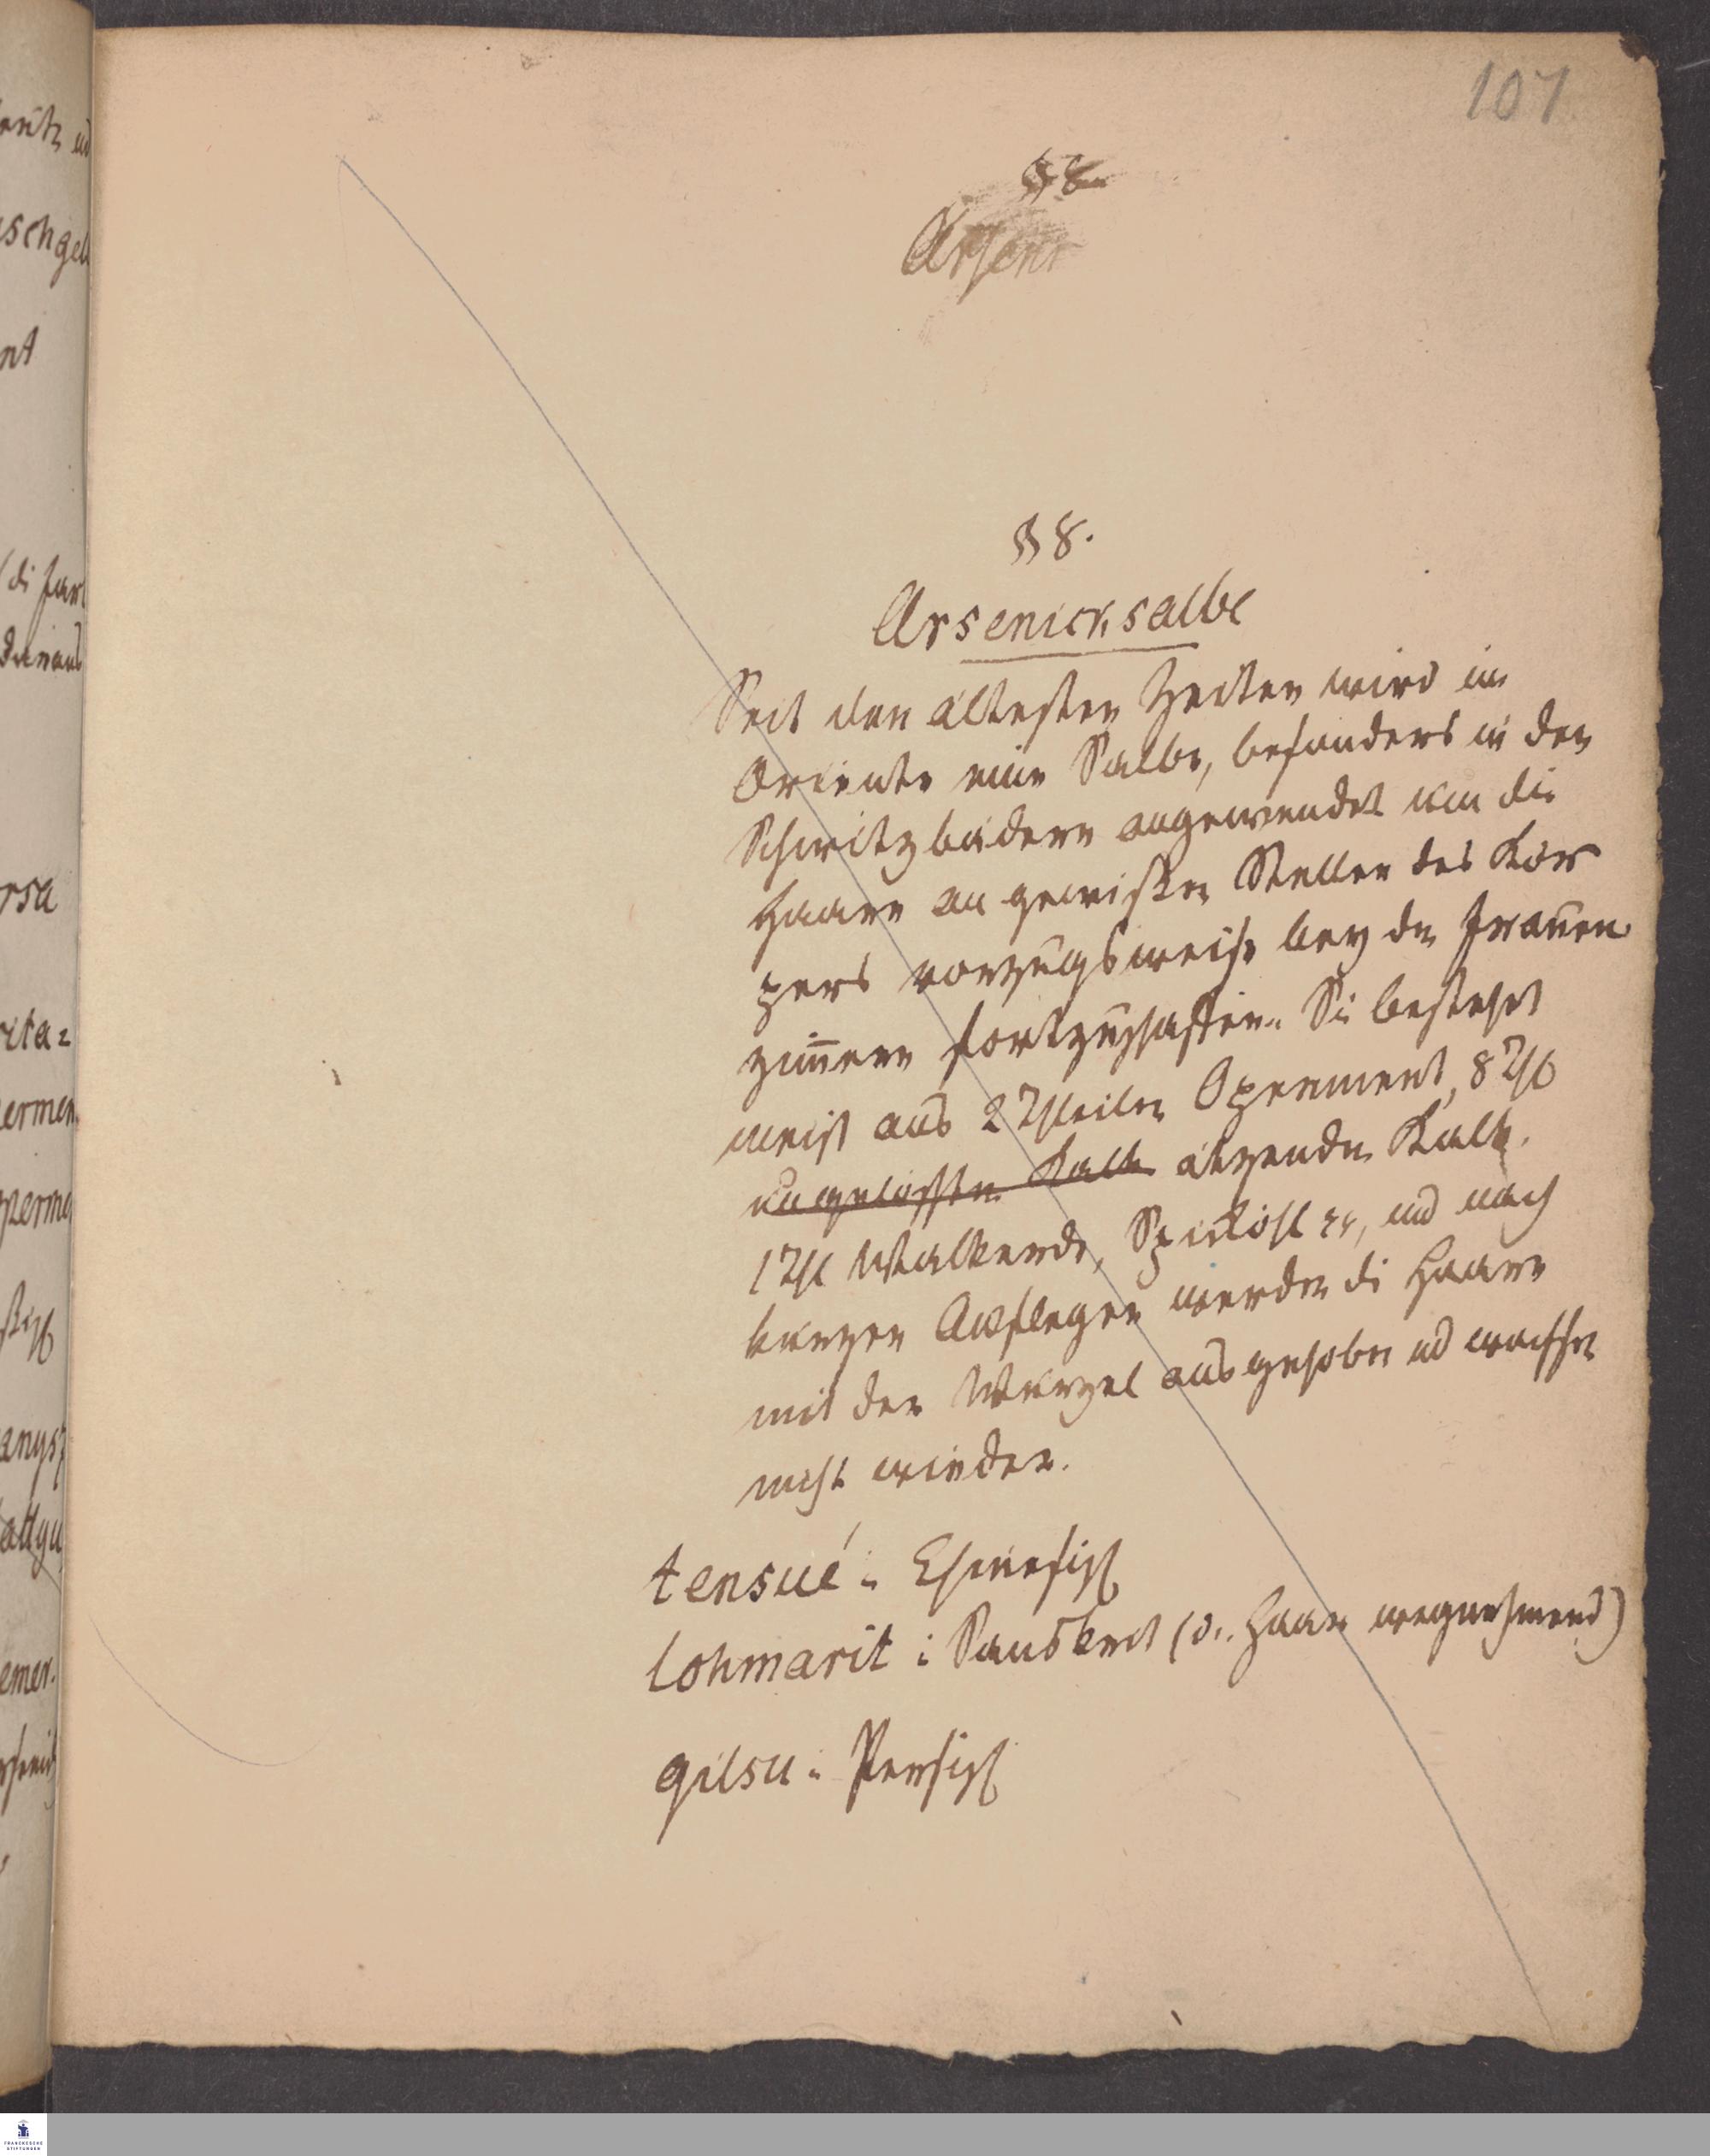 107
§ 8
Arseni
§ 8.
Arsenicksalbe
Seit den ältesten Zeiten wird im
Oriente eine Salbe, besonders in den
Schwitzbädern angewendet um die
Haare an gewißen Stellen des Kör
pers vorzugsweise bey den Frauen
zim̄ern fortzuschaffen. Sie bestehet
meist aus 2 Theilen Operment, 8 Th
ungelöschten Kalk ätzenden Kalk,
1 Th Walkerde, Spicköhl etc, und nach
kurzen Auflegen werden die Haare
mit der Wurzel ausgehoben und wachsen
nicht wieder.
tensué : Chinesisch
lohmarit : Sanskrit (d. Haar wegnehmend)
gilsu : Persisch
FRANCKESCHE
STIFTUNGEN